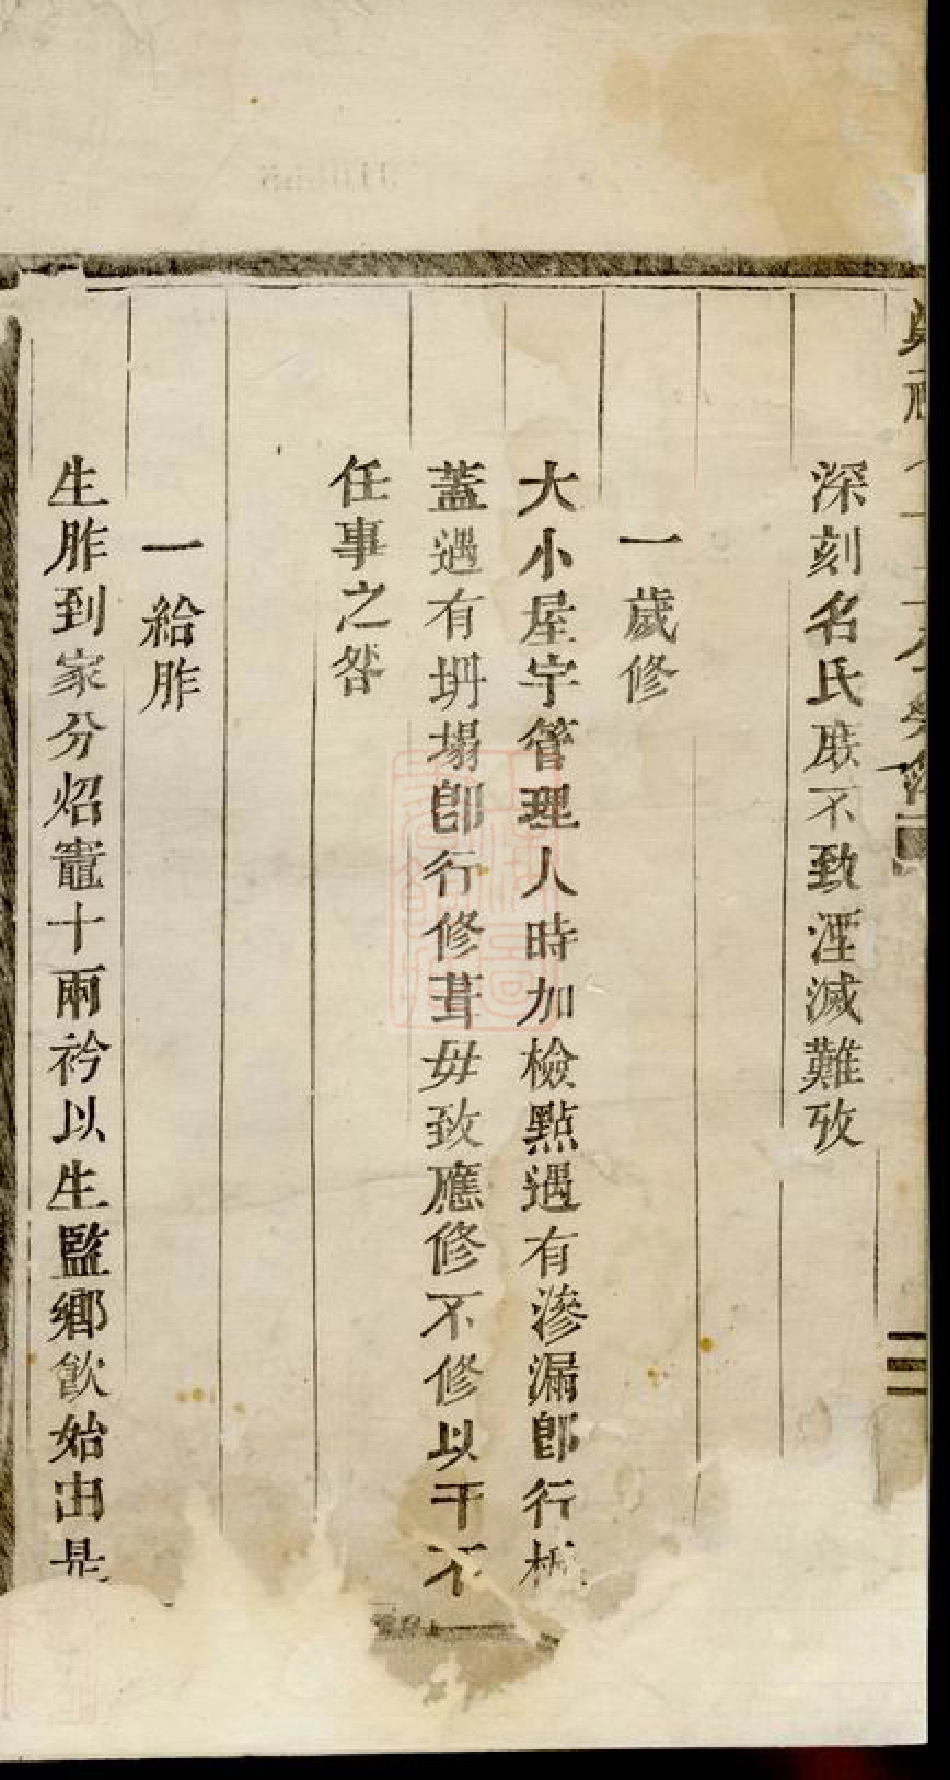 深刻名氏庶不致湮滅難攷
一歲修
大小屋宇管理人時加檢點遇有滲漏卽行
蓋遇有坍塌卽行修葺毋致應修不修以干不
任事之咎
一給胙
生胙到家分炤竈十兩衿以生監鄉飮始由是